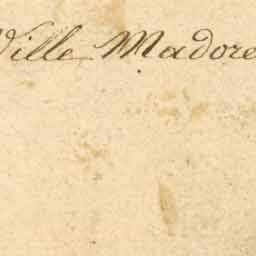 Ville Madore